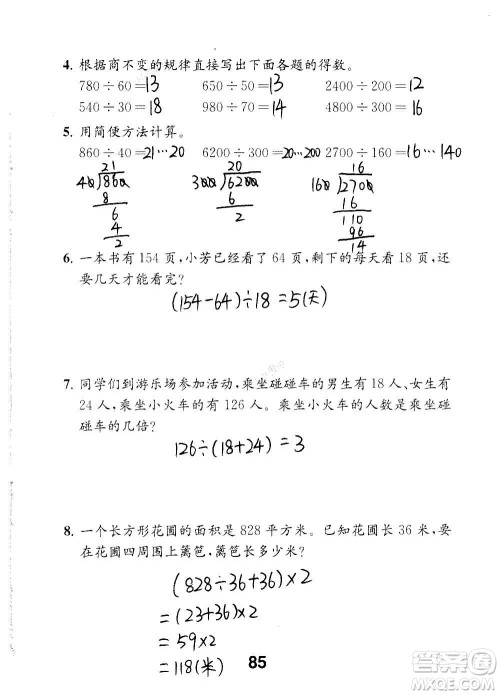 4. 根据商不变的规律直接写出下面各题的得数。
780÷60=13 650÷50=13 2400÷200=12
540÷30=18 980÷70=14 4800÷300=16
5. 用简便方法计算。
860÷40=21…20 6200÷300=20…200 2700÷160=16…140
21 20 16
40)860 300)6200 160)2700
8 6 16
6 2 110
4 96
2 14
6. 一本书有 154 页，小芳已经看了 64 页，剩下的每天看 18 页，还
要几天才能看完？
(154-64)÷18=5(天)
7. 同学们到游乐场参加活动，乘坐碰碰车的男生有 18 人、女生有
24 人，乘坐小火车的有 126 人。乘坐小火车的人数是乘坐碰
碰车的几倍？
126÷(18+24)=3
8. 一个长方形花圃的面积是 828 平方米。已知花圃长 36 米，要
在花圃四周围上篱笆，篱笆长多少米？
(828÷36+36)×2
=(23+36)×2
=59×2
=118(米)
85